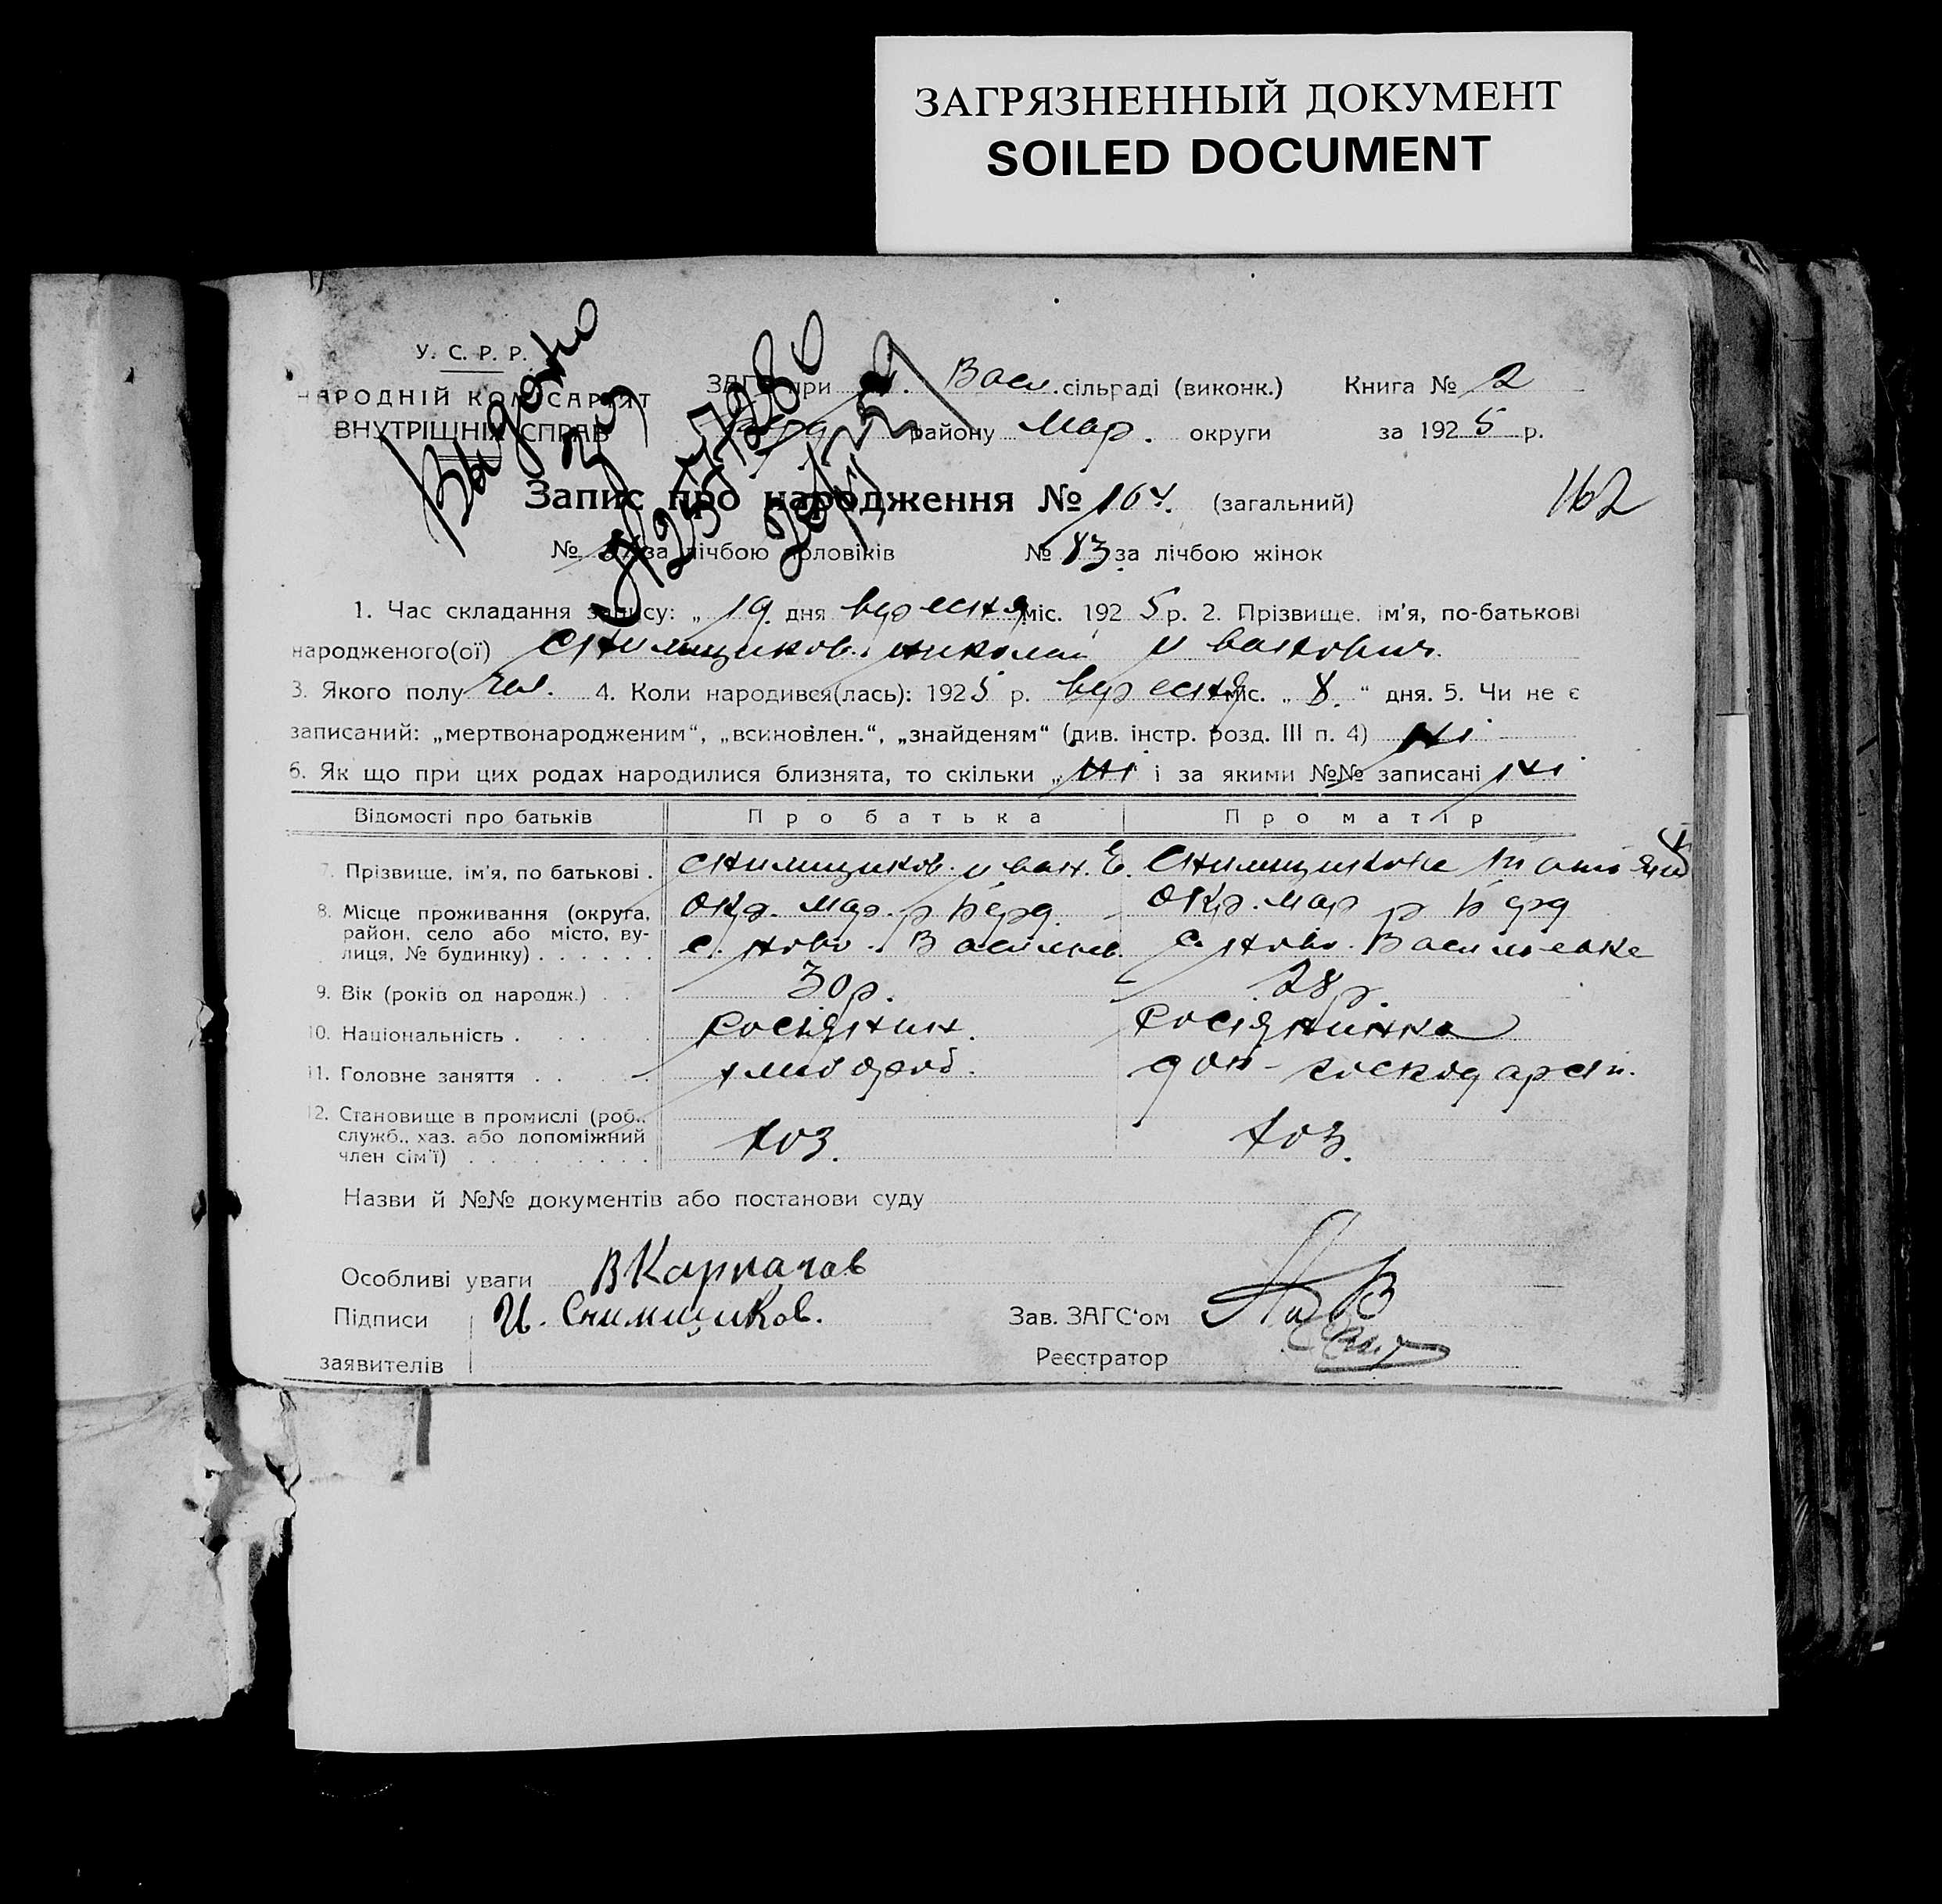 ЗАГРЯЗНЕННЫЙ ДОКУМЕНТ
SOILED DOCUMENT
У. С. Р. Р.
НАРОДНІЙ КОМІСАРІЯТ
ВНУТРІШНІХ СПРАВ
Выдано
ЗАГС при Васил. сільраді (виконк.) Книга № 2
району Мар. округи за 1925 р.
Запис про народження № 164. (загальний) 162
№ за лічбою чоловіків № 83 за лічбою жінок
1. Час складання запису: „ 19 дня вересня міс. 1925 р. 2. Прізвище, ім'я, по-батькові
народженого(ої) Снимщиков. николай иванович.
3. Якого полу чол. 4. Коли народився(лась): 1925 р. вересня міс. „ 8. “ дня. 5. Чи не є
записаний: „мертвонародженим“, „всиновлен.“, „знайденям“ (див. інстр. розд. III п. 4) ні
6. Як що при цих родах народилися близнята, то скільки „ ні і за якими №№ записані ні
Відомості про батьків Про батька Про матір
7. Прізвище, ім'я, по батькові . Снимщиков. иван. Е. Снимщикова Татьяна
8. Місце проживання (округа, район, село або місто, вулиця, № будинку) . . . . . .
окр. Мар. р Берд окр. Мар р Берд
с. ново. Васильев. с. ново. Васильевке
9. Вік (років од народж.) . . 30 р. 28 р.
10. Національність . . . . . росіянин. росіянинка
11. Головне заняття . . . хлібороб. дом-господарств.
12. Становище в промислі (роб., служб., хаз. або допоміжний член сім'ї) . . . . . . . . . хоз. хоз.
Назви й №№ документів або постанови суду
Особливі уваги В Карпачов
Підписи И. Снимщиков. Зав. ЗАГС'ом
заявителів Реєстратор